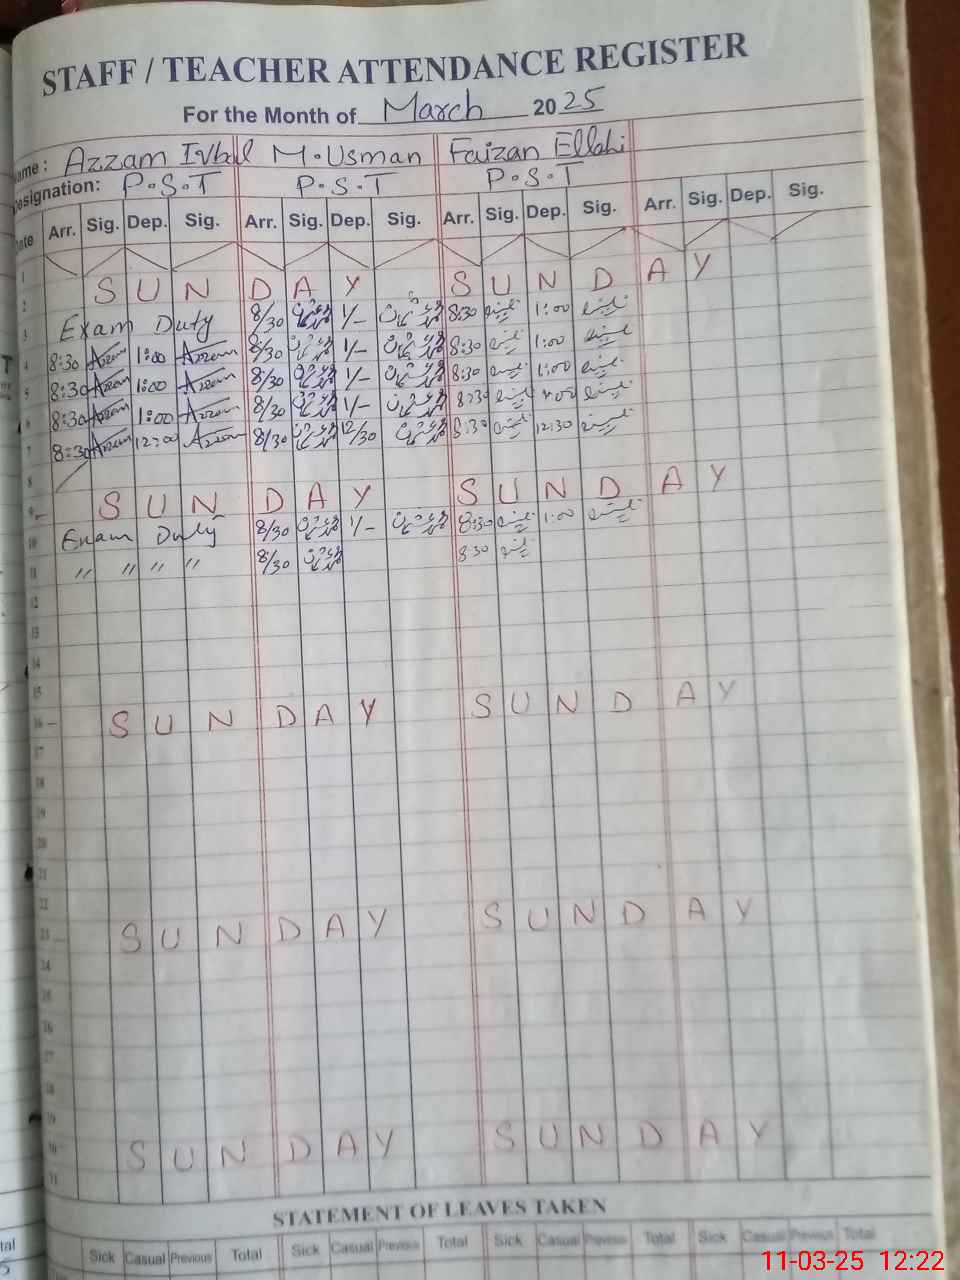 STAFF / TEACHER ATTENDANCE REGISTER
For the Month of March 2025
ame : Azzam Iqbal M.Usman Faizan Ellahi
Designation: P.S.T P.S.T P.S.T
ate Arr. Sig. Dep. Sig. Arr. Sig. Dep. Sig. Arr. Sig. Dep. Sig. Arr. Sig. Dep. Sig.
1
2 S U N D A Y S U N D A Y
3 Exam Duty 8/30 1/- 8:30 1:00
4 8:30 Azzam 1:00 Azzam 8/30 1/- 8:30 1:00
5 8:30 Azzam 1:00 Azzam 8/30 1/- 8:30 1:00
6 8:30 Azzam 1:00 Azzam 8/30 1/- 8:30
7 8:30 Azzam 12:00 Azzam 8/30 12/30 8:30 12:30
8
9 S U N D A Y S U N D A Y
10 Exam Duty 8/30 1/- 8:30 1:00
11 " " " " 8/30 8 30
12
13
14
15
16 S U N D A Y S U N D A Y
17
18
19
20
21
22
23 S U N D A Y S U N D A Y
24
25
26
27
28
29
30 S U N D A Y S U N D A Y
31
STATEMENT OF LEAVES TAKEN
tal Sick Casual Previous Total Sick Casual Previous Total Sick Casual Previous Total Sick Casual Previous Total
11-03-25 12:22